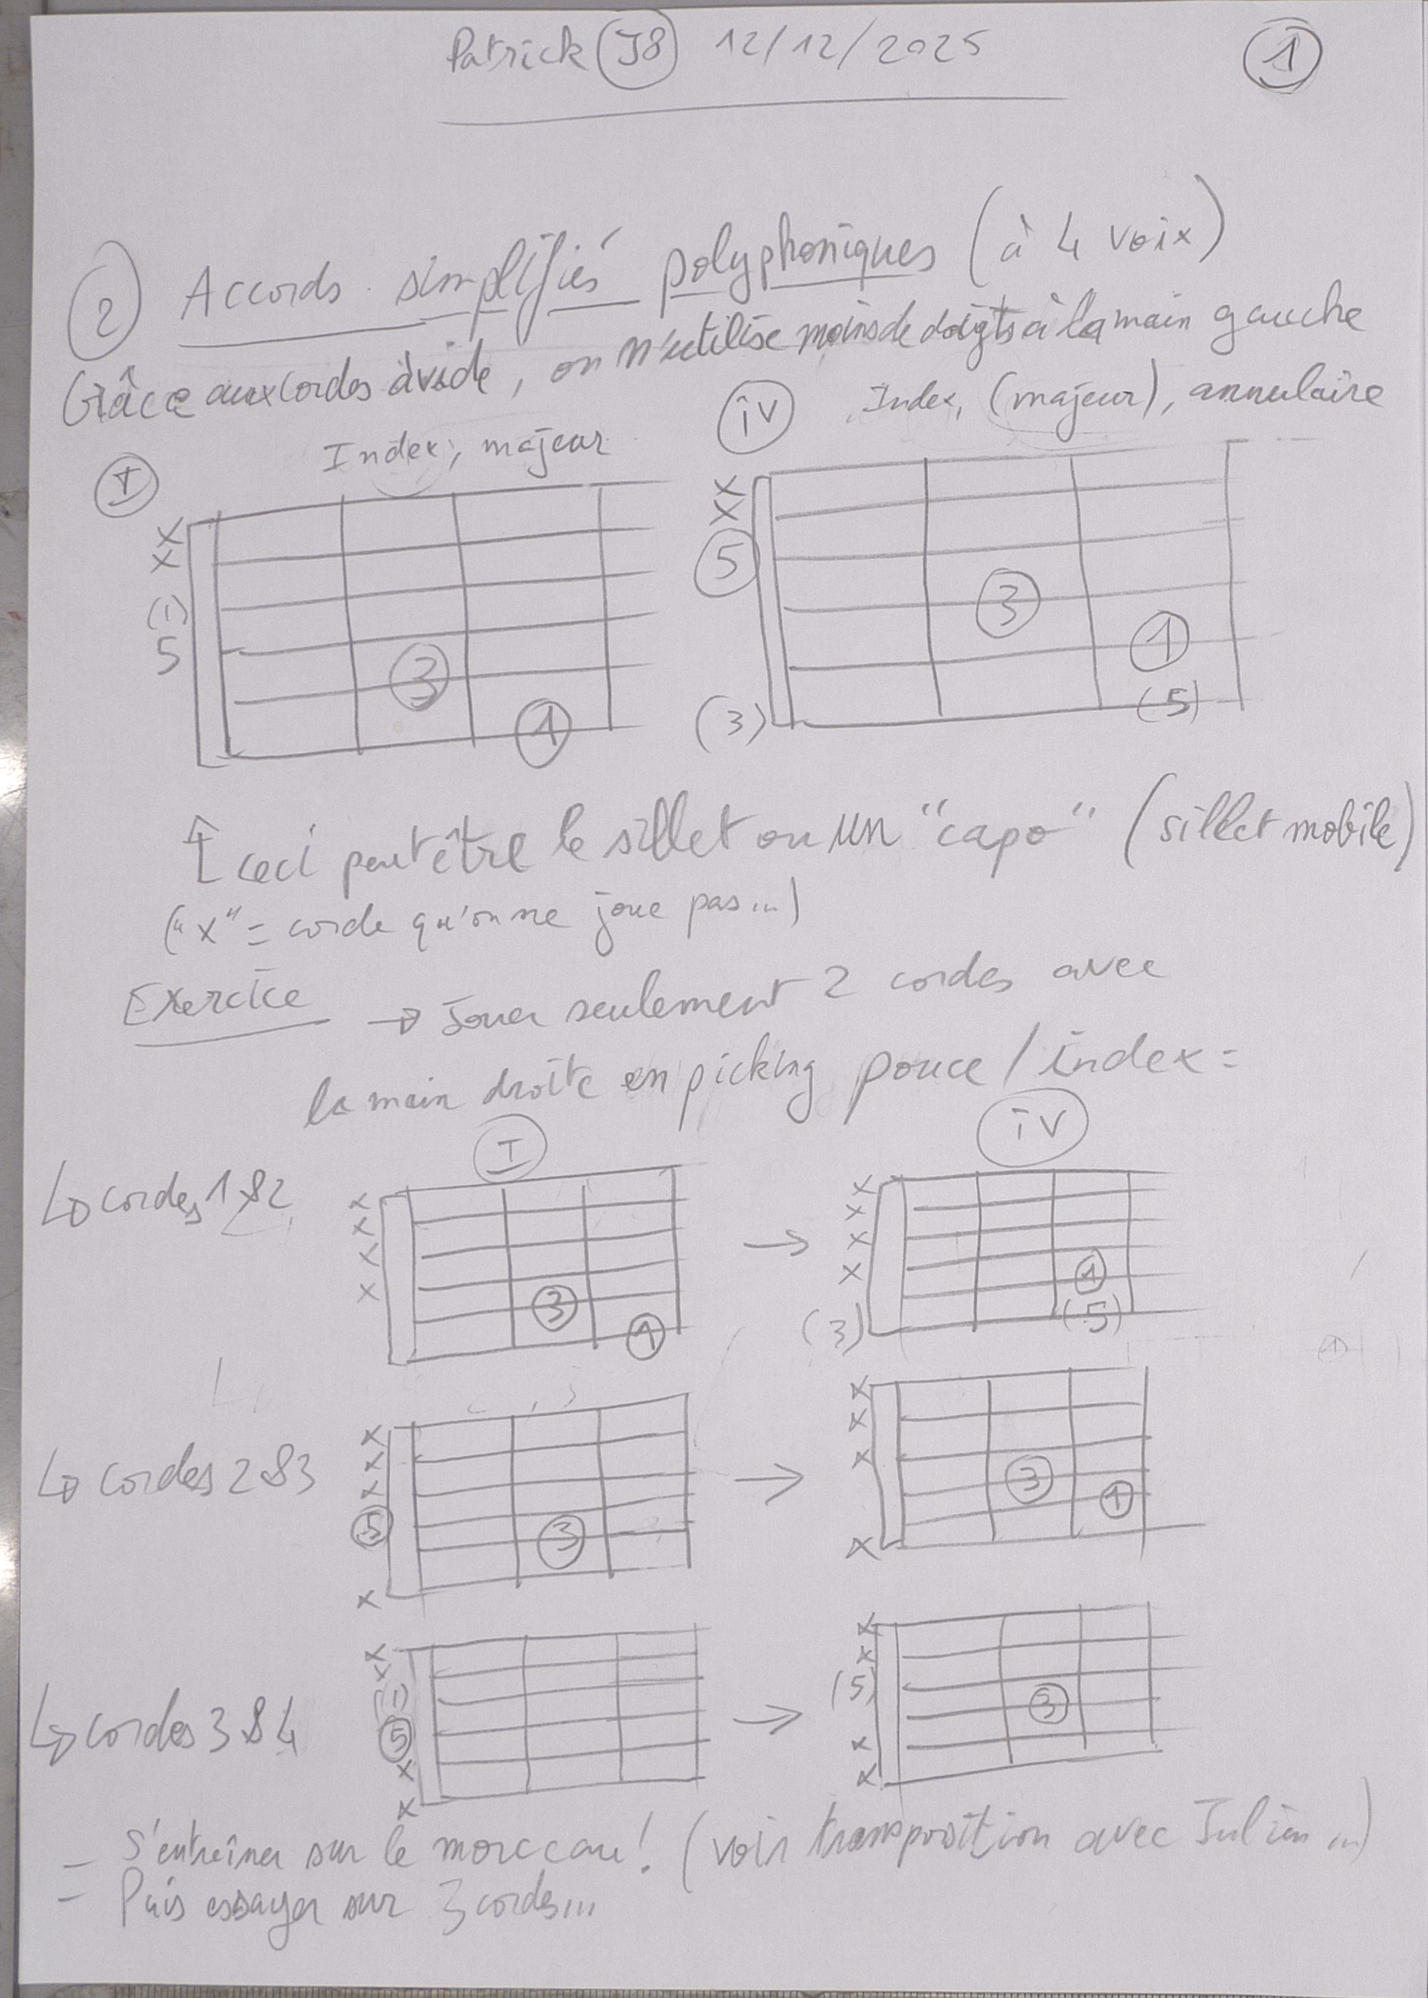 Patrick J8 12/12/2025 1
2 Accords simplifiés polyphoniques (à 4 voix)
Grâce aux cordes à vide, on n'utilise moins de doigts à la main gauche
I Index, majeur
iv Index, (majeur), annulaire
x
x
(1)
5
3
1
x
x
5
3
1
(3) (5)
↑ ceci peut être le sillet ou un "capo" (sillet mobile)
("x" = corde qu'on ne joue pas...)
Exercice → Jouer seulement 2 cordes avec
la main droite en picking pouce / index =
I iv
↳ cordes 1 & 2
x
x
x
x
3
1
→
x
x
x
x
1
(3) (5)
↳ cordes 2 & 3
x
x
x
5
3
x
→
x
x
x
3
1
x
↳ cordes 3 & 4
x
x
(1)
5
x
x
→
x
x
(5)
3
x
x
- S'entraîner sur le morceau! (voir transposition avec Julien ...)
- Puis essayer sur 3 cordes...